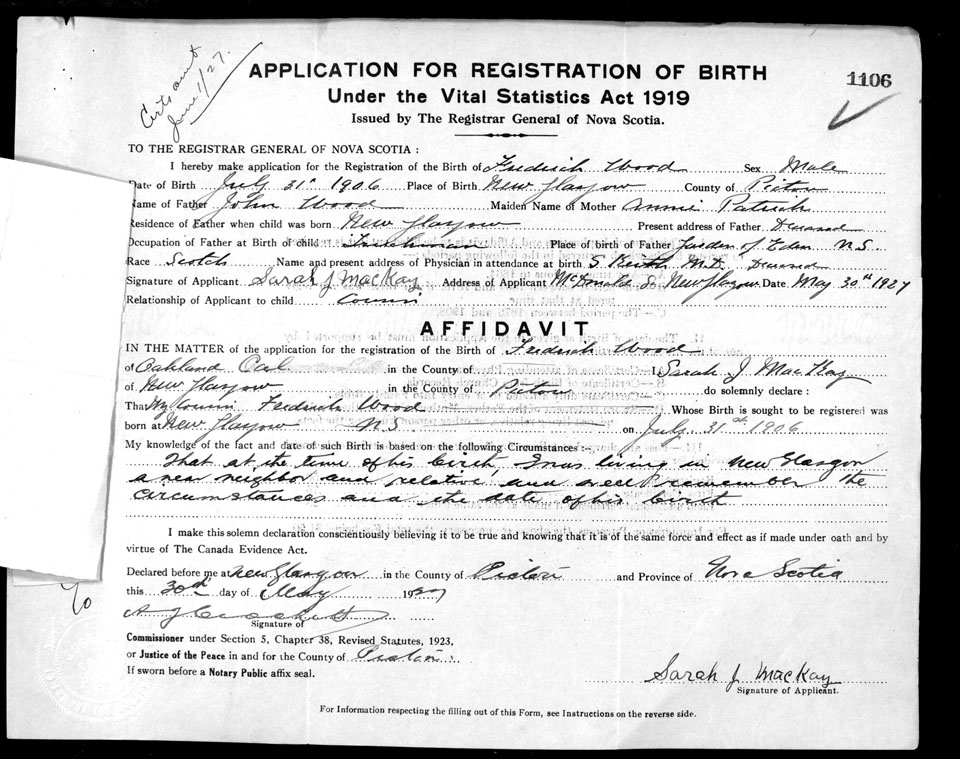 Certs sent
June 1/27.
APPLICATION FOR REGISTRATION OF BIRTH
1106
Under the Vital Statistics Act 1919
Issued by The Registrar General of Nova Scotia.
TO THE REGISTRAR GENERAL OF NOVA SCOTIA :
I hereby make application for the Registration of the Birth of Fredrick Wood Sex Male
Date of Birth July 31st 1906 Place of Birth New Glasgow County of Pictou
Name of Father John Wood Maiden Name of Mother Annie Patrick
Residence of Father when child was born New Glasgow Present address of Father Deceased
Occupation of Father at Birth of child Place of birth of Father Garden of Eden N.S.
Race Scotch Name and present address of Physician in attendance at birth S Keith M.D. Deceased
Signature of Applicant Sarah J MacKay Address of Applicant McDonald St New Glasgow Date May 30th 1927
Relationship of Applicant to child Cousin
AFFIDAVIT
IN THE MATTER of the application for the registration of the Birth of Fredrick Wood
of Oakland Cal in the County of I Sarah J MacKay
of New Glasgow in the County of Pictou do solemnly declare :
That My Cousin Fredrick Wood Whose Birth is sought to be registered was
born at New Glasgow N.S. on July 31st 1906
My knowledge of the fact and date of such Birth is based on the following Circumstances :-
That at the time of his birth I was living in New Glasgow
a near neighbor and relative and well remember the
circumstances and the date of his birth
I make this solemn declaration conscientiously believing it to be true and knowing that it is of the same force and effect as if made under oath and by
virtue of The Canada Evidence Act.
Declared before me at New Glasgow in the County of Pictou and Province of Nova Scotia
this 30th day of May 1927
Signature of
Commissioner under Section 5, Chapter 38, Revised Statutes, 1923,
or Justice of the Peace in and for the County of Pictou
If sworn before a Notary Public affix seal.
Sarah J MacKay
Signature of Applicant.
For Information respecting the filling out of this Form, see Instructions on the reverse side.